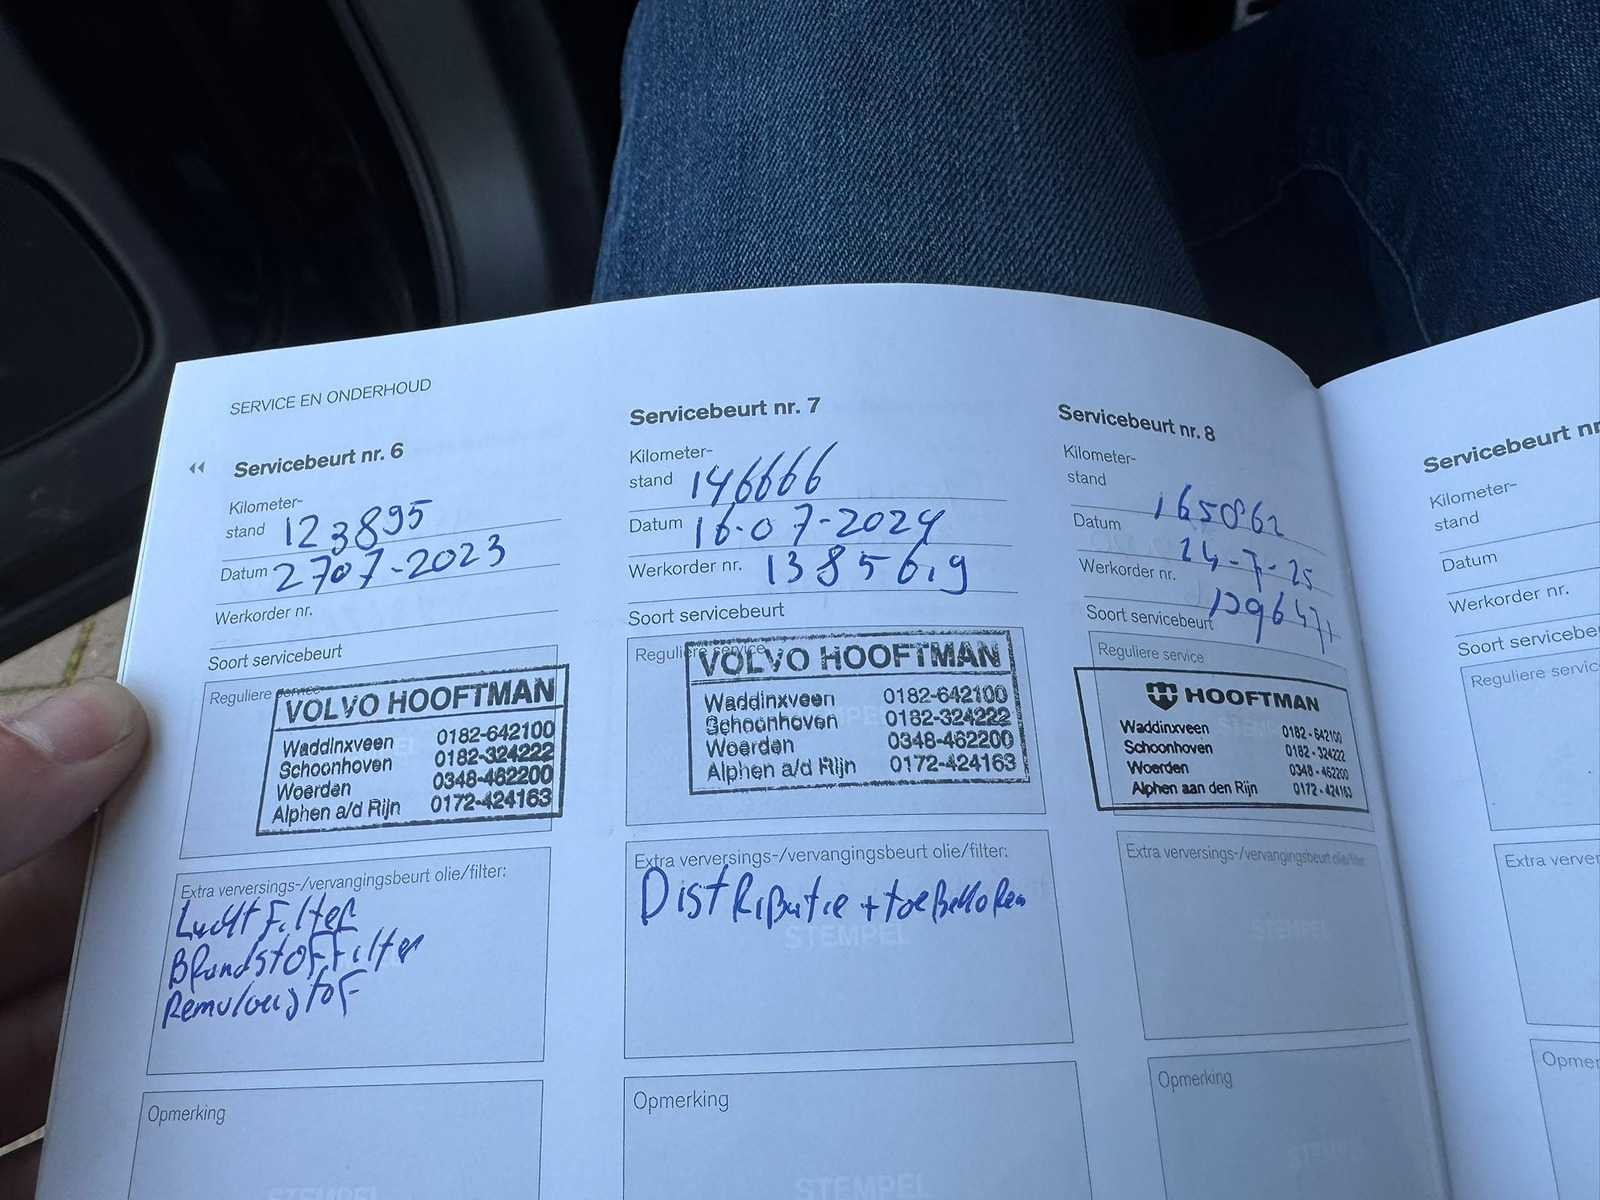 SERVICE EN ONDERHOUD
Servicebeurt nr. 6
Kilometer-
stand 123895
Datum 2707-2023
Werkorder nr.
Soort servicebeurt
Reguliere service
VOLVO HOOFTMAN
Waddinxveen 0182-642100
Schoonhoven 0182-324222
Woerden 0348-462200
Alphen a/d Rijn 0172-424163
Extra verversings-/vervangingsbeurt olie/filter:
Luchtfilter
Brandstoffilter
Remvloeistof
Opmerking
STEMPEL
Servicebeurt nr. 7
Kilometer-
stand 146666
Datum 16-07-2024
Werkorder nr. 1385619
Soort servicebeurt
Reguliere service
VOLVO HOOFTMAN
Waddinxveen 0182-642100
Schoonhoven 0182-324222
Woerden 0348-462200
Alphen a/d Rijn 0172-424163
Extra verversings-/vervangingsbeurt olie/filter:
Distributie + toebehoren
STEMPEL
Opmerking
STEMPEL
Servicebeurt nr. 8
Kilometer-
stand 165862
Datum 24-7-25
Werkorder nr.
Soort servicebeurt
Reguliere service
HOOFTMAN
Waddinxveen 0182-642100
Schoonhoven 0182-324222
Woerden 0348-462200
Alphen aan den Rijn 0172-424163
Extra verversings-/vervangingsbeurt olie/filter
STEMPEL
Opmerking
STEMPEL
Servicebeurt nr
Kilometer-
stand
Datum
Werkorder nr.
Soort servicebe
Reguliere servic
Extra verver
Opme